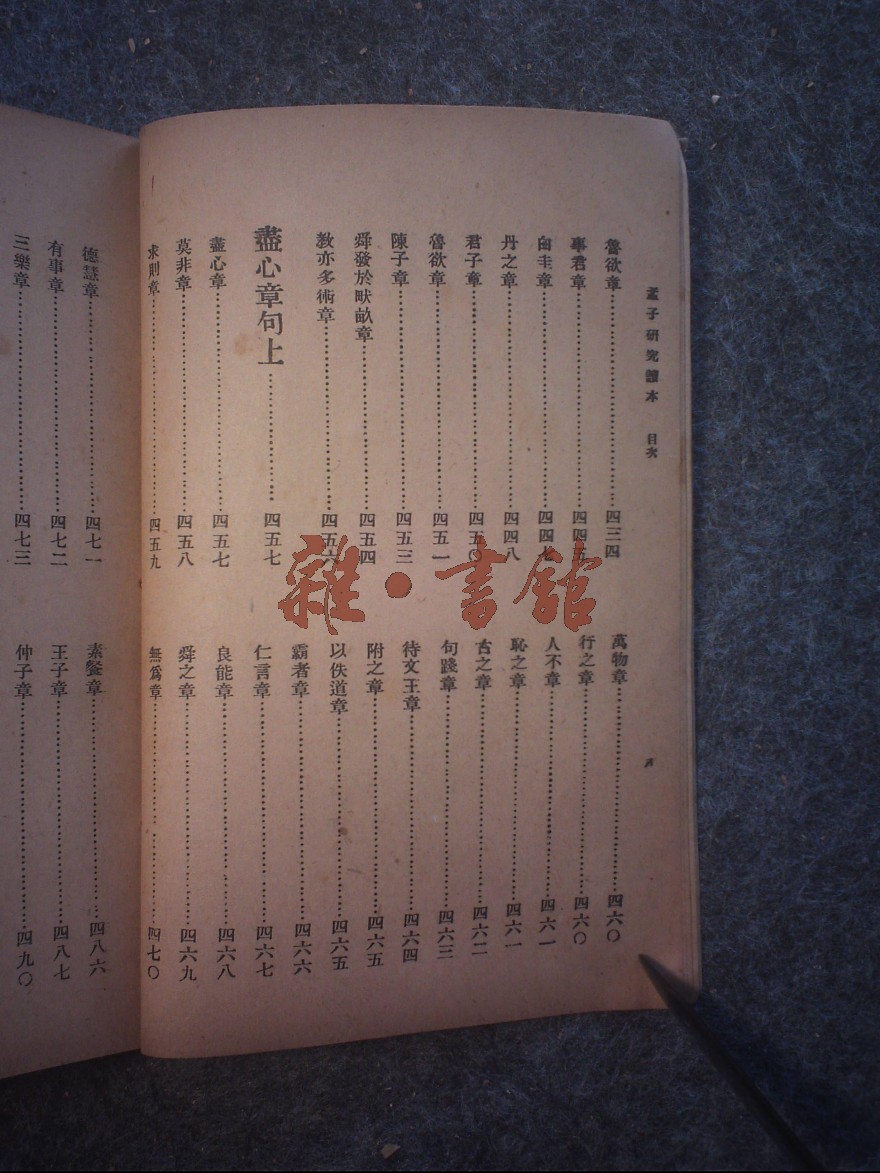 孟子研究讀本　目次
八
魯欲章……四三四
事君章……四四五
白圭章……四四七
丹之章……四四八
君子章……四五〇
魯欲章……四五一
陳子章……四五三
舜發於畎畝章……四五四
教亦多術章……四五六
盡心章句上……四五七
盡心章……四五七
莫非章……四五八
求則章……四五九
萬物章……四六〇
行之章……四六〇
人不章……四六一
恥之章……四六一
古之章……四六二
句踐章……四六三
待文王章……四六四
附之章……四六五
以佚道章……四六五
霸者章……四六六
仁言章……四六七
良能章……四六八
舜之章……四六九
無爲章……四七〇
德慧章……四七一
有事章……四七二
三樂章……四七三
素餐章……四八六
王子章……四八七
仲子章……四九〇
雜·書館